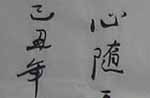 心随
己丑年